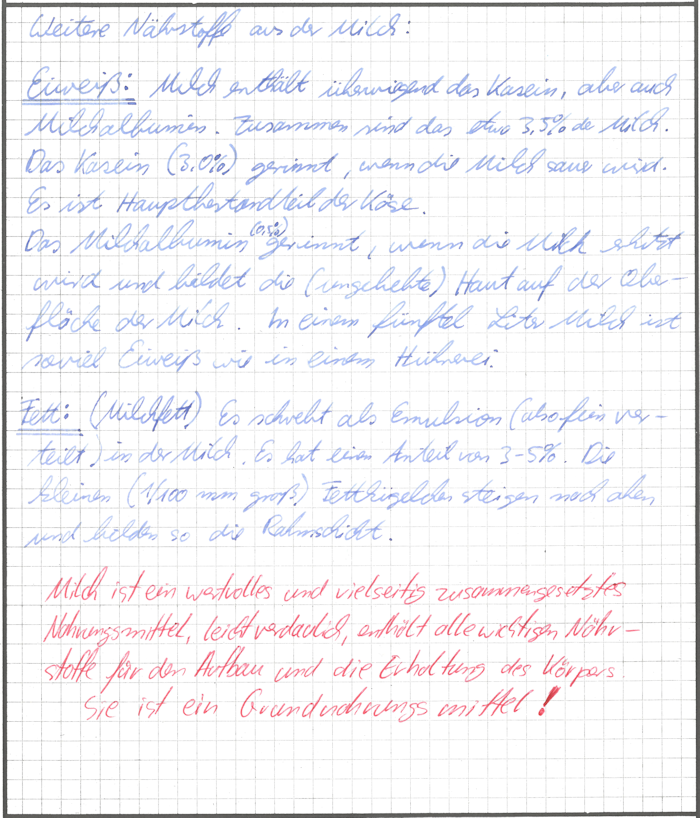 Weitere Nährstoffe aus der Milch:
Eiweiß: Milch enthält überwiegend das Kasein, aber auch
Milchalbumin. Zusammen sind das etwa 3,5% der Milch.
Das Kasein (3,0%) gerinnt, wenn die Milch sauer wird.
Es ist Hauptbestandteil der Käse.
Das Milchalbumin (0,5%) gerinnt, wenn die Milch erhitzt
wird und bildet die (ungeliebte) Haut auf der Ober-
fläche der Milch. In einem fünftel Liter Milch ist
soviel Eiweiß wie in einem Hühnerei.
Fett: (Milchfett) Es schwebt als Emulsion (also fein ver-
teilt) in der Milch. Es hat einen Anteil von 3-5%. Die
kleinen (1/100 mm groß) Fettkügelchen steigen nach oben
und bilden so die Rahmschicht.
Milch ist ein wertvolles und vielseitig zusammengesetztes
Nahrungsmittel, leicht verdaulich, enthält alle wichtigen Nähr-
stoffe für den Aufbau und die Erhaltung des Körpers.
Sie ist ein Grundnahrungsmittel!